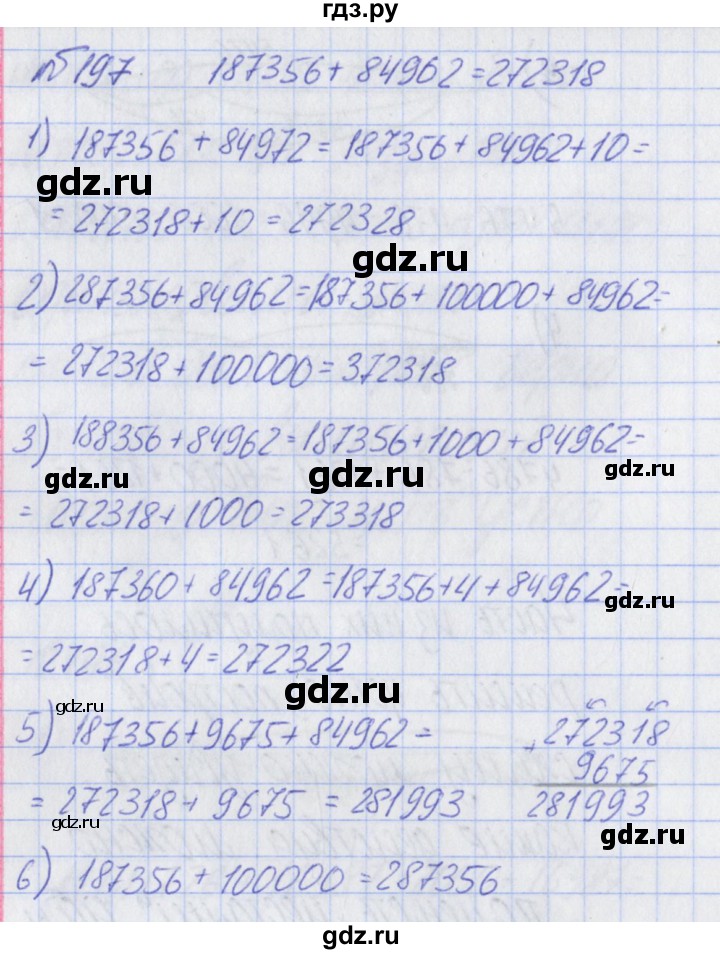 гдз.ру
№197. 187356 + 84962 = 272318
1) 187356 + 84972 = 187356 + 84962 + 10 =
gdz.ru
= 272318 + 10 = 272328
gdz.ru
2) 287356 + 84962 = 187356 + 100000 + 84962 =
gdz.ru
= 272318 + 100000 = 372318
3) 188356 + 84962 = 187356 + 1000 + 84962 =
gdz.ru gdz.ru gdz.ru
= 272318 + 1000 = 273318
4) 187360 + 84962 = 187356 + 4 + 84962 =
gdz.ru
= 272318 + 4 = 272322
gdz.ru
gdz.ru
5) 187356 + 9675 + 84962 = + 272318
9675
= 272318 + 9675 = 281993 281993
gdz.ru
gdz.ru
6) 187356 + 100000 = 287356
gdz.ru
gdz.ru